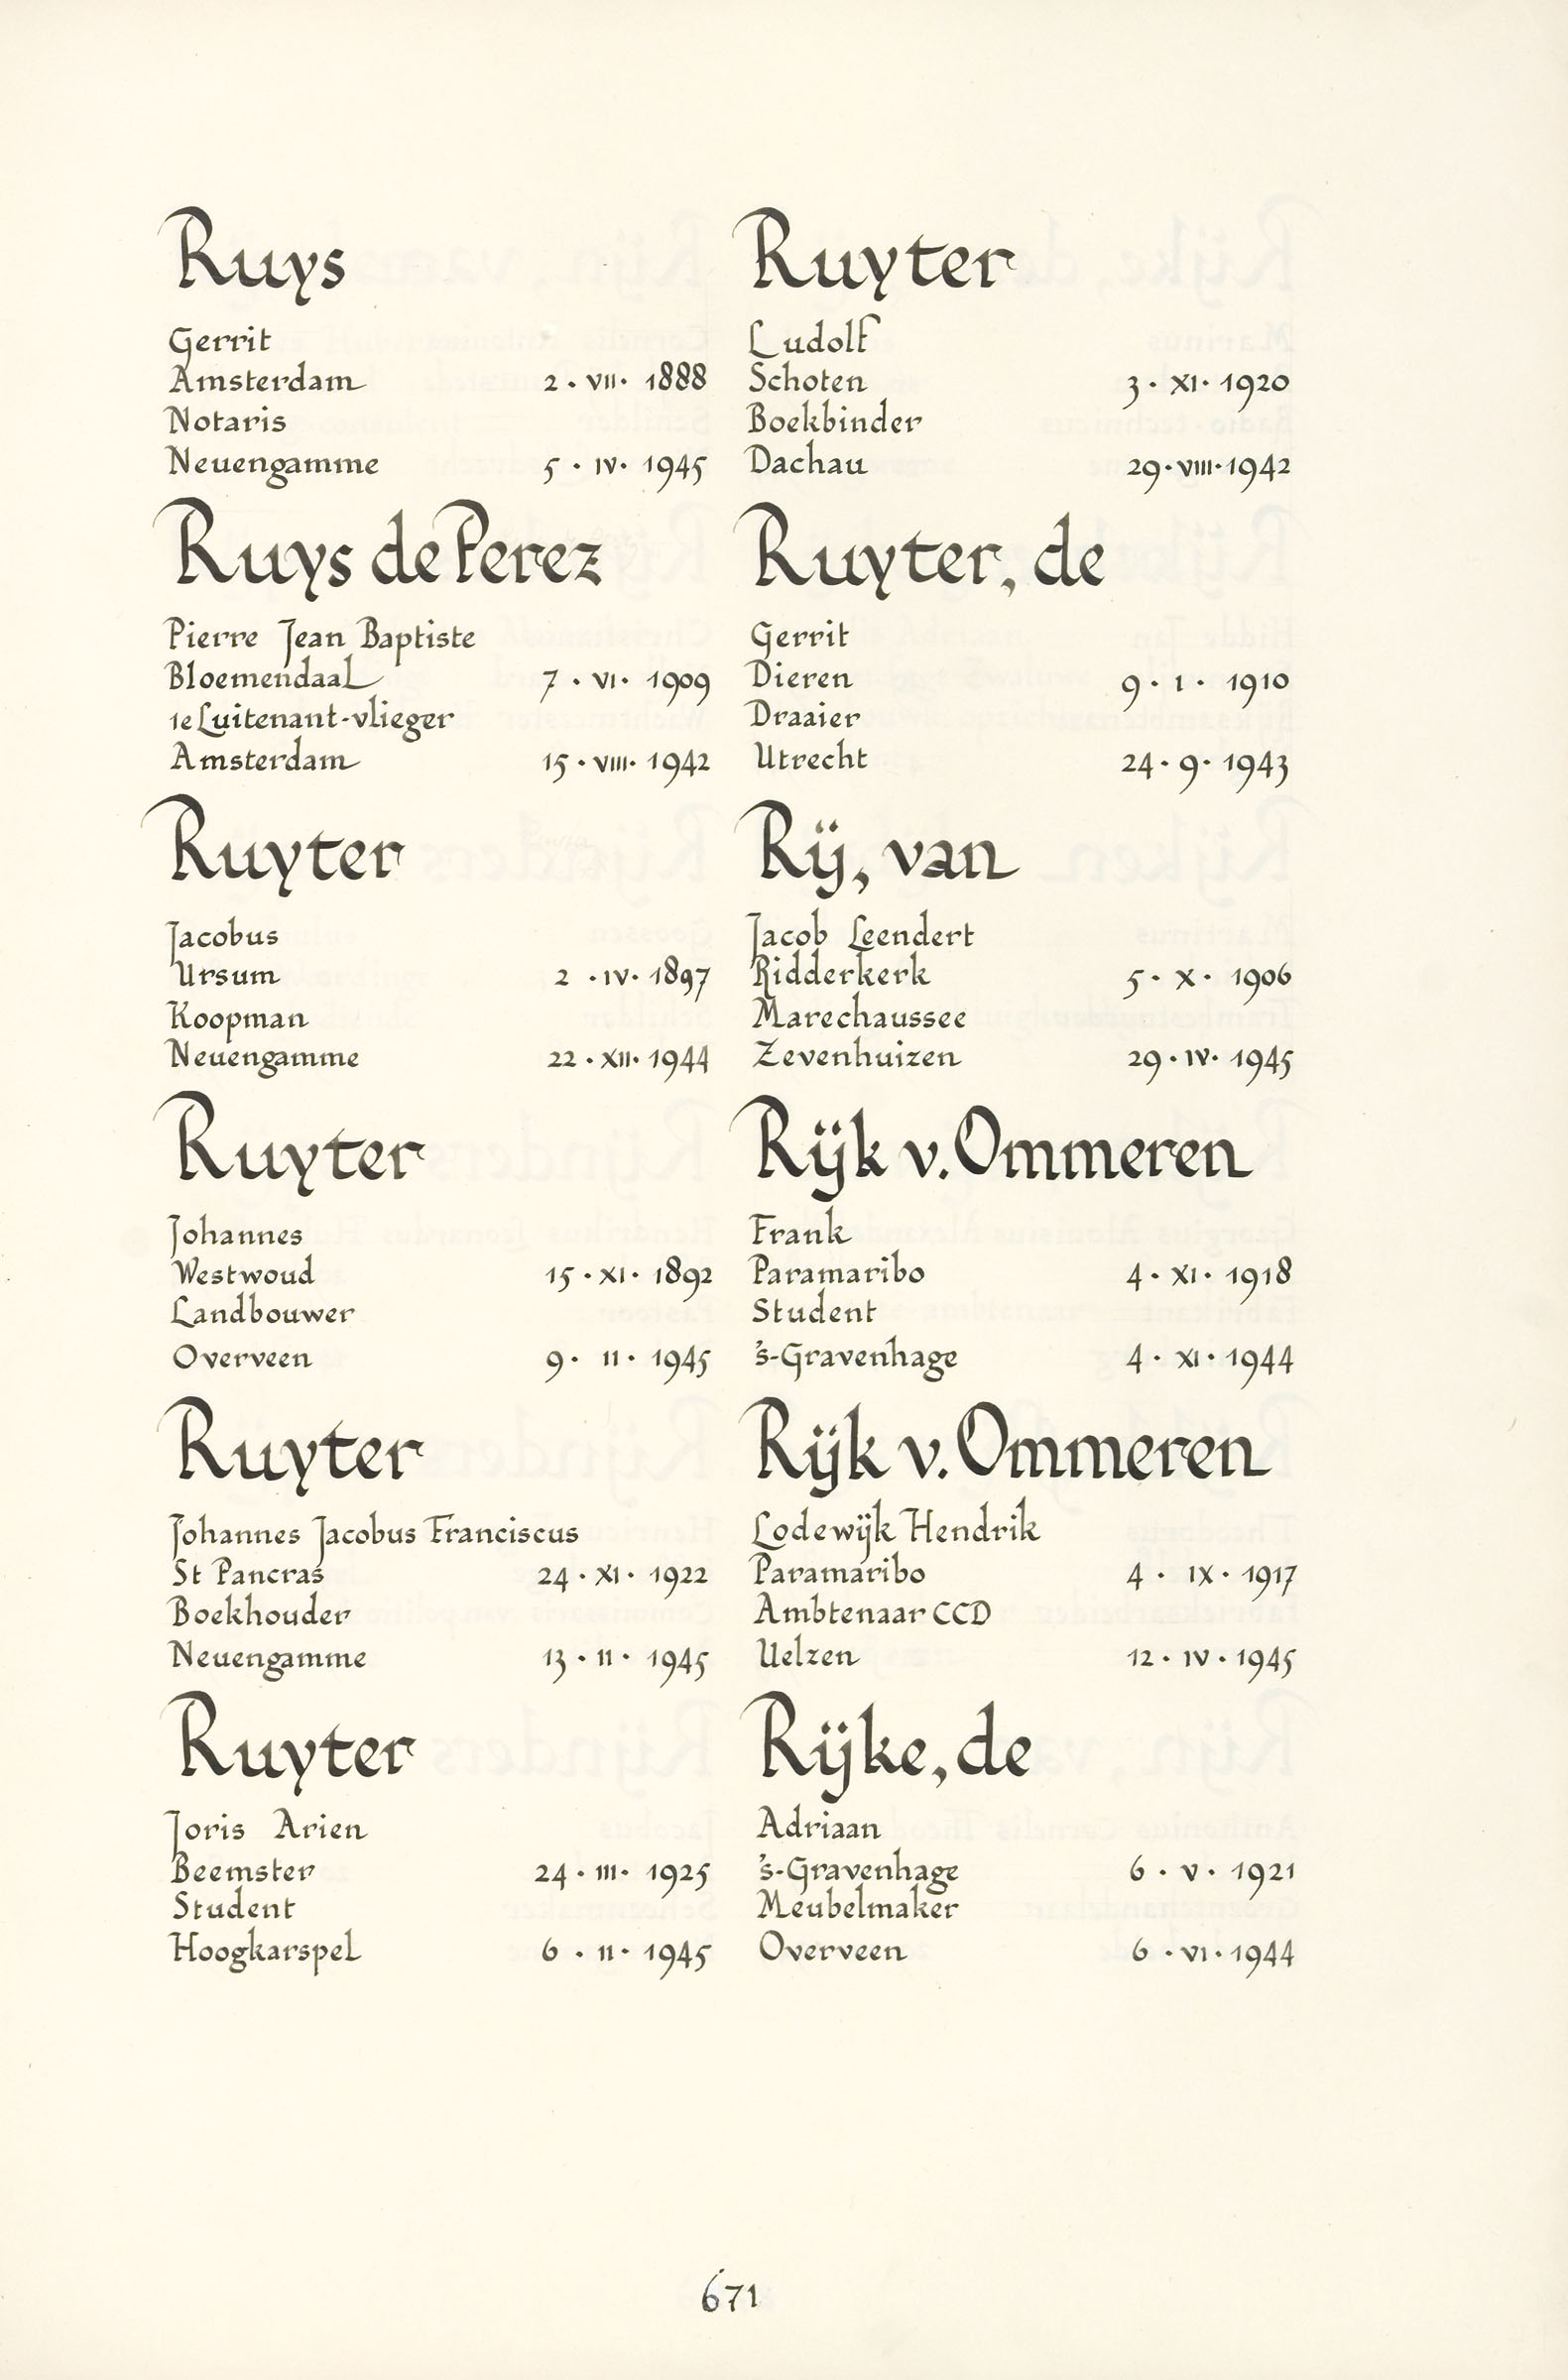 Ruys
Gerrit
Amsterdam 2 · VII · 1888
Notaris
Neuengamme 5 · IV · 1945
Ruys de Perez
Pierre Jean Baptiste
Bloemendaal 7 · VI · 1909
1e Luitenant-vlieger
Amsterdam 15 · VIII · 1942
Ruyter
Jacobus
Ursum 2 · IV · 1897
Koopman
Neuengamme 22 · XII · 1944
Ruyter
Johannes
Westwoud 15 · XI · 1892
Landbouwer
Overveen 9 · II · 1945
Ruyter
Johannes Jacobus Franciscus
St Pancras 24 · XI · 1922
Boekhouder
Neuengamme 13 · II · 1945
Ruyter
Joris Arien
Beemster 24 · III · 1925
Student
Hoogkarspel 6 · II · 1945
Ruyter
Ludolf
Schoten 3 · XI · 1920
Boekbinder
Dachau 29 · VIII · 1942
Ruyter, de
Gerrit
Dieren 9 · I · 1910
Draaier
Utrecht 24 · 9 · 1943
Rij, van
Jacob Leendert
Ridderkerk 5 · X · 1906
Marechaussee
Zevenhuizen 29 · IV · 1945
Rijk v. Ommeren
Frank
Paramaribo 4 · XI · 1918
Student
's-Gravenhage 4 · XI · 1944
Rijk v. Ommeren
Lodewijk Hendrik
Paramaribo 4 · IX · 1917
Ambtenaar CCD
Uelzen 12 · IV · 1945
Rijke, de
Adriaan
's-Gravenhage 6 · V · 1921
Meubelmaker
Overveen 6 · VI · 1944
671